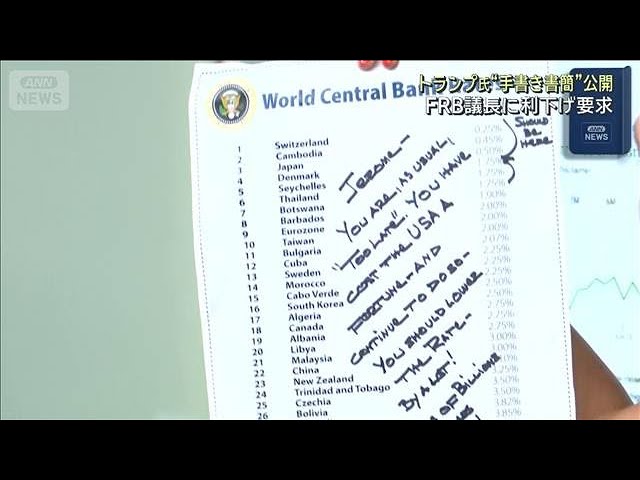 ANN NEWS
トランプ氏“手書き書簡”公開
FRB議長に利下げ要求
ANN NEWS
World Central Bank
SHOULD BE HERE
1 Switzerland 0.25%
2 Cambodia 0.45%
3 Japan 0.50%
4 Denmark
5 Seychelles 1.75%
6 Thailand 1.75%
7 Botswana
8 Barbados 2.00%
9 Eurozone 2.00%
10 Taiwan 2.00%
11 Bulgaria 2.07%
12 Cuba 2.25%
13 Sweden
14 Morocco 2.25%
15 Cabo Verde 2.50%
16 South Korea
17 Algeria 2.75%
18 Canada 2.75%
19 Albania
20 Libya 3.00%
21 Malaysia 3.00%
22 China
23 New Zealand 3.25%
24 Trinidad and Tobago 3.50%
25 Czechia 3.50%
26 Bolivia 3.82%
3.85%
JEROME—
YOU ARE, AS USUAL,
"TOO LATE". YOU HAVE
COST THE USA A
FORTUNE — AND
CONTINUE TO DO SO —
YOU SHOULD LOWER
THE RATE —
BY A LOT!
OF BILLIONS